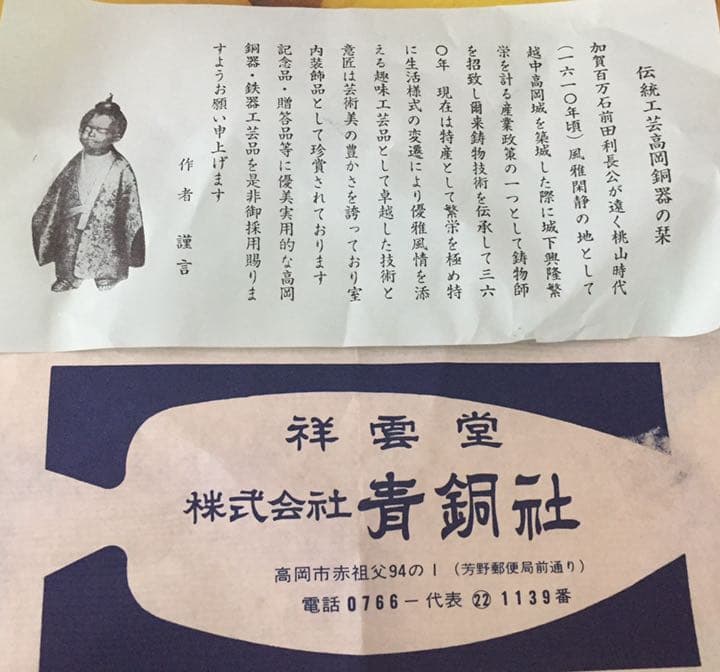 伝統工芸高岡銅器の栞
加賀百万石前田利長公が遠く桃山時代
(一六一〇年頃)風雅閑静の地として
越中高岡城を築城した際に城下興隆繁
栄を計る産業政策の一つとして鋳物師
を招致し爾来鋳物技術を伝承して三六
〇年 現在は特産として繁栄を極め特
に生活様式の変遷により優雅風情を添
える趣味工芸品として卓越した技術と
意匠は芸術美の豊かさを誇っており室
内装飾品として珍賞されております
記念品・贈答品等に優美実用的な高岡
銅器・鉄器工芸品を是非御採用賜りま
すようお願い申上げます
作者 謹言
祥雲堂
株式会社 青銅社
高岡市赤祖父94の1 (芳野郵便局前通り)
電話 0766-代表 ㉒ 1139番